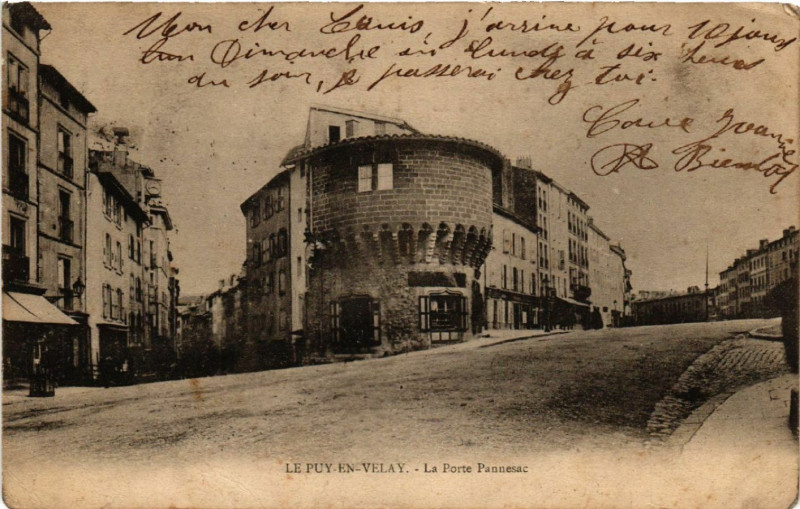 Mon cher Louis, j'arrive pour 10 jours
Dimanche ou Lundy à six heures
du soir, je passerai chez toi.
A Bientôt
LE PUY-EN-VELAY. - La Porte Pannesac